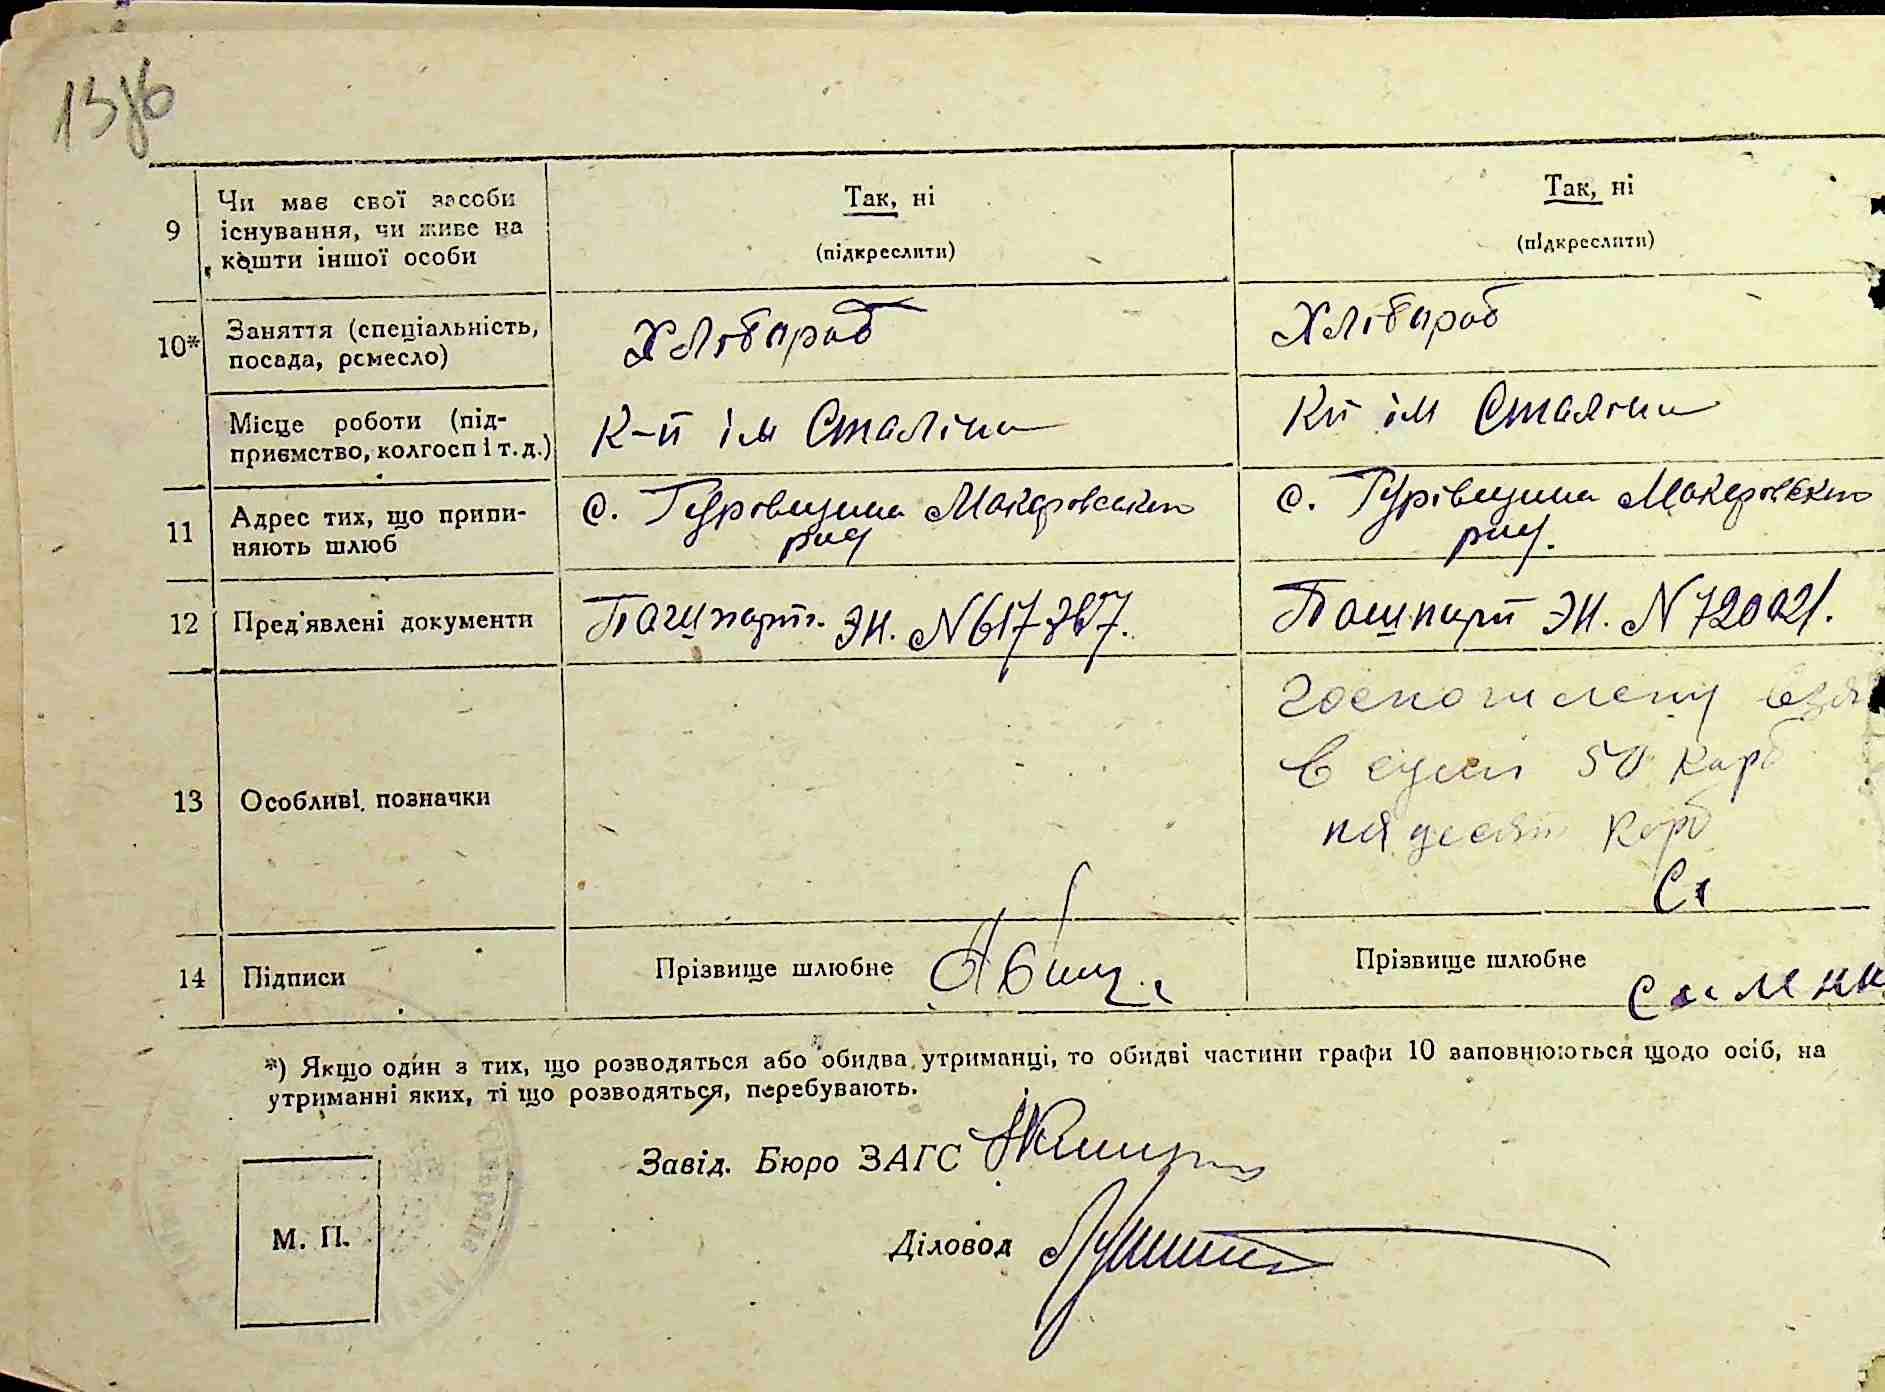 13зв
9 Чи має свої засоби існування, чи живе на кошти іншої особи
Так, ні
(підкреслити)
Так, ні
(підкреслити)
10* Заняття (спеціальність, посада, ремесло)
Хлібороб
Хлібороб
Місце роботи (підприємство, колгосп і т. д.)
К-п ім Сталіна
Кп ім Сталіна
11 Адрес тих, що припиняють шлюб
с. Гурівщина Макарівського
рну
с. Гурівщина Макарівського
рну.
12 Пред'явлені документи
Пашпорт. ЭН. №
Пашпорт ЭН. № 720021.
13 Особливі позначки
взя
в сумі 50 карб
пядесят карб
Са
14 Підписи
Прізвище шлюбне
Прізвище шлюбне
*) Якщо один з тих, що розводяться або обидва утриманці, то обидві частини графи 10 заповнюються щодо осіб, на
утриманні яких, ті що розводяться, перебувають.
Завід. Бюро ЗАГС
Діловод
М. П.